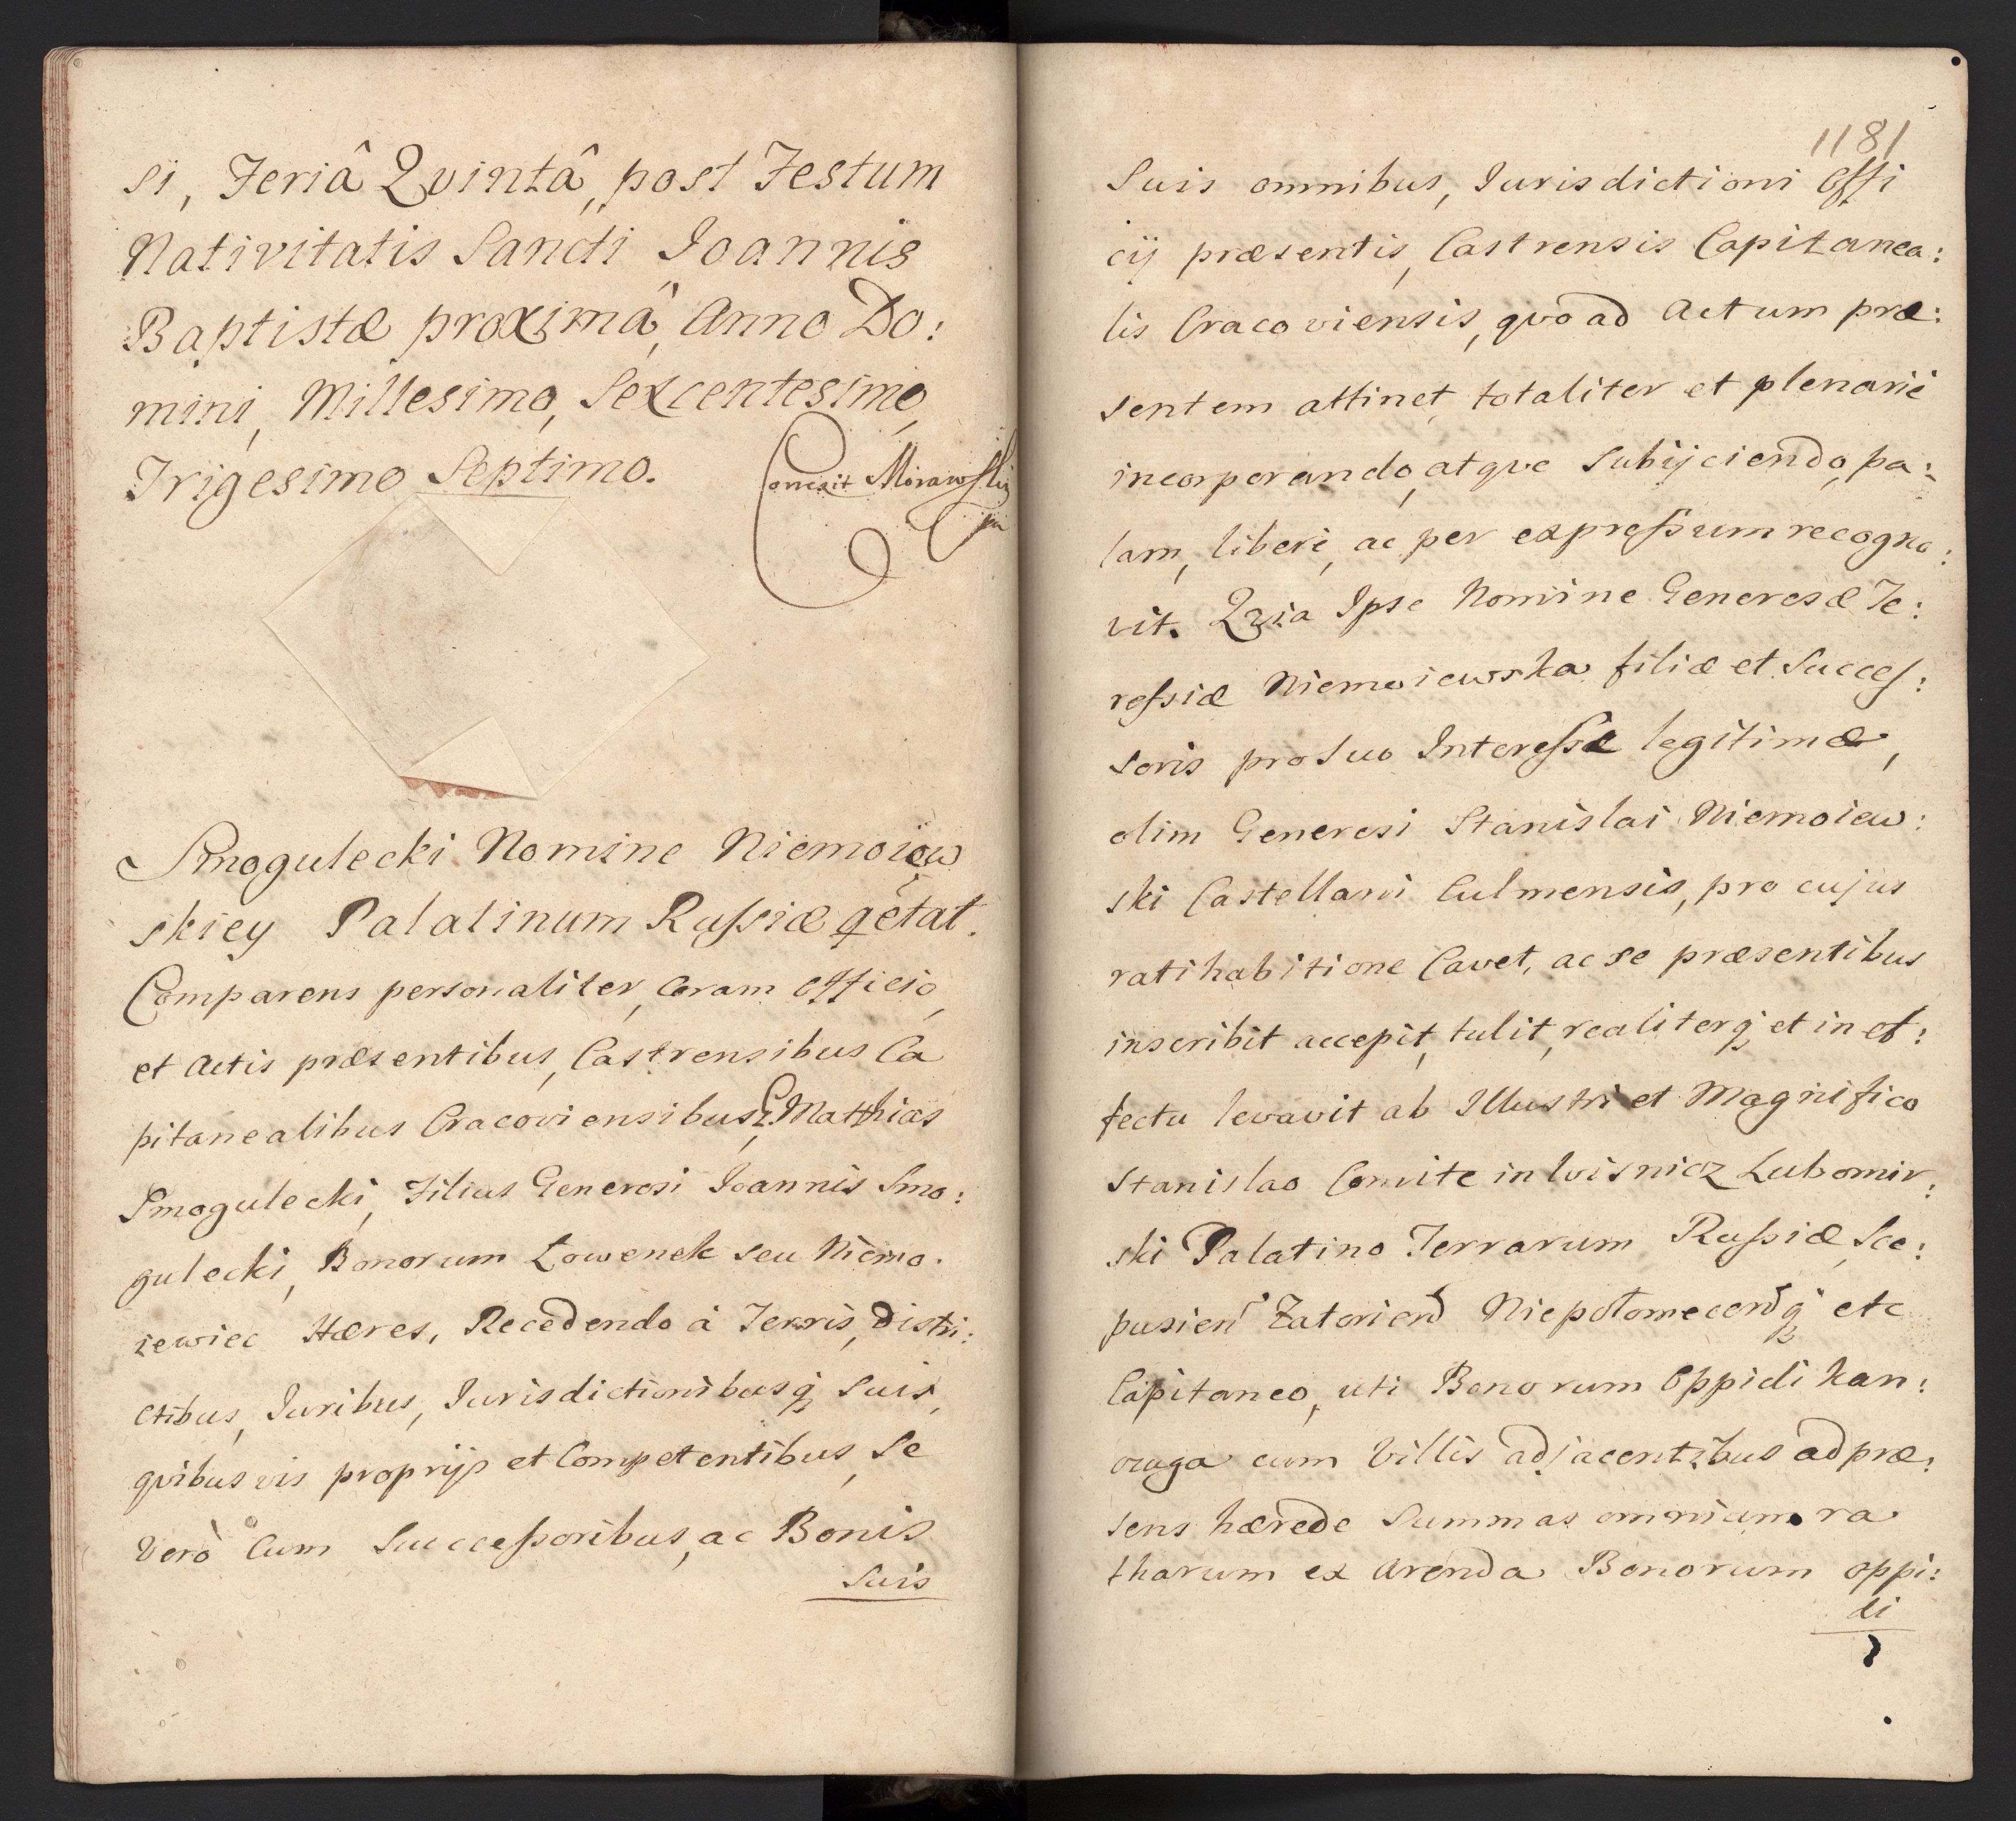 si, Feriâ Qvintâ, post Festum
Nativitatis Sancti Ioannis
Baptistæ proximâ, Anno Do:
mini, Millesimo, Sexcentesimo,
Trigesimo Septimo.
Correxit Morawski
mp
Smogulecki Nomine Niemoiew
skiey Palatinum Rufsiæ qetat.
Comparens personaliter, Coram Officio,
et Actis præsentibus, Castrensibus Ca
pitanealibus Cracoviensibus, G. Matthias
Smogulecki, Filius Generosi Ioannis Smo:
gulecki, Bonorum Łowenek seu Niemo.
iewiec Hæres, Recedendo à Terris, Distri:
ctibus, Iuribus, Iurisdictionibusq; Suis,
qvibusvis proprijs et Competentibus, Se
Verò Cum Succefsoribus, ac Bonis
Suis
1181
Suis omnibus, Iurisdictioni Offi
cij præsentis, Castrensis Capitanea:
lis Cracoviensis, qvo ad Actum præ:
sentem attinet, totaliter et plenariè
incorporando, atqve Subijciendo, pa:
lam, liberè, ac per exprefsum recogno:
vit. Qvia Ipse Nomine Generosæ Te:
refsiæ Niemoiewska filiæ et Succef:
soris pro Suo Interefse legitimæ,
olim Generosi Stanislai Niemoiew:
ski Castellani Culmensis, pro cujus
ratihabitione Cavet, ac se præsentibus
inscribit accepit, tulit, realiterq; et in ef:
fectu levavit ab Illustri et Magnifico
Stanislao Comite in Wisnicz Lubomir:
ski Palatino Terrarum Rufsiæ, Sce:
pusien Zatorien Niepołomecenq; etc
Capitaneo, uti Bonorum Oppidi Kan:
czuga cum Villis adjacentibus ad præ:
sens hærede Summas omnium ra
tharum ex Arenda Bonorum oppi:
di